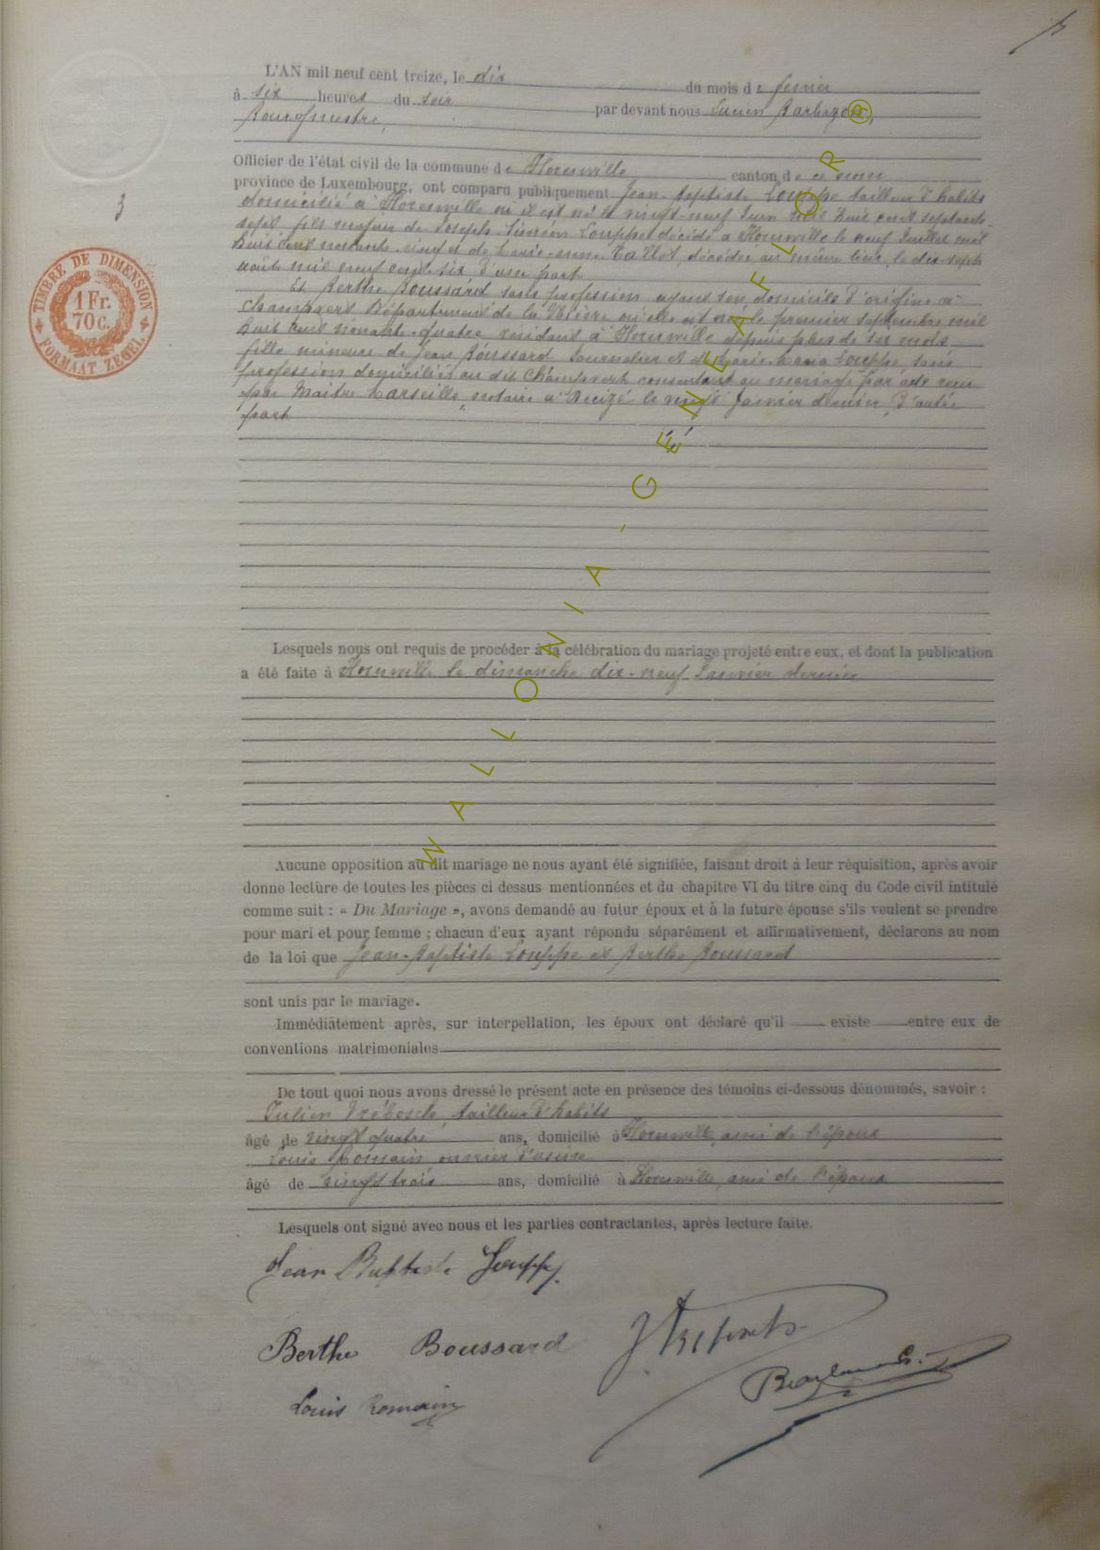 L'AN mil neuf cent treize, le dix du mois de fevrier
à six heures du soir par devant nous Lucien Barbazon,
Bourgmestre,
Officier de l'état civil de la commune de Florenville canton de ce nom
province de Luxembourg, ont comparu publiquement Jean-Baptiste Louppe tailleur d'habits
domicilié à Florenville où il est né le vingt-neuf Juin mil huit cent septante-
sept, fils majeur de Joseph Louppe décédé à Florenville le neuf Juillet mil
huit cent nonante-cinq et de Marie-Anne décédée au même lieu, le dix-sept
août mil neuf cent six d'une part
Et Berthe Boussard sans profession ayant son domicile d'origine à
Champvert Département de la Nièvre où elle est née le premier septembre mil
huit cent nonante-quatre résidant à Florenville depuis plus de six mois
fille mineure de Jean Boussard Journalier et de Marie Louppe sans
profession domiciliés au dit Champvert consentant au mariage par acte reçu
par Maître Marseille, notaire à Decize le vingt Janvier dernier, d'autre
part
3
TIMBRE DE DIMENSION
1 Fr.
70 c.
FORMAAT ZEGEL
Lesquels nous ont requis de procéder à la célébration du mariage projeté entre eux, et dont la publication
a été faite à Florenville le dimanche dix-neuf Janvier dernier
Aucune opposition au dit mariage ne nous ayant été signifiée, faisant droit à leur réquisition, après avoir
donne lecture de toutes les pièces ci dessus mentionnées et du chapitre VI du titre cinq du Code civil intitulé
comme suit : « Du Mariage », avons demandé au futur époux et à la future épouse s'ils veulent se prendre
pour mari et pour femme ; chacun d'eux ayant répondu séparément et affirmativement, déclarons au nom
de la loi que Jean-Baptiste Louppe et Berthe Boussard
sont unis par le mariage.
Immédiatement après, sur interpellation, les époux ont déclaré qu'il existe entre eux de
conventions matrimoniales
De tout quoi nous avons dressé le présent acte en présence des témoins ci-dessous dénommés, savoir :
Julien tailleur d'habits
âgé de vingt quatre ans, domicilié à Florenville, ami de l'époux
Louis Romain ouvrier d'usine
âgé de vingt trois ans, domicilié à Florenville, ami de l'époux
Lesquels ont signé avec nous et les parties contractantes, après lecture faite.
Jean Baptiste Louppe
Berthe Boussard
Louis Romain
WALLONIA-GÉNÉAFLOR®